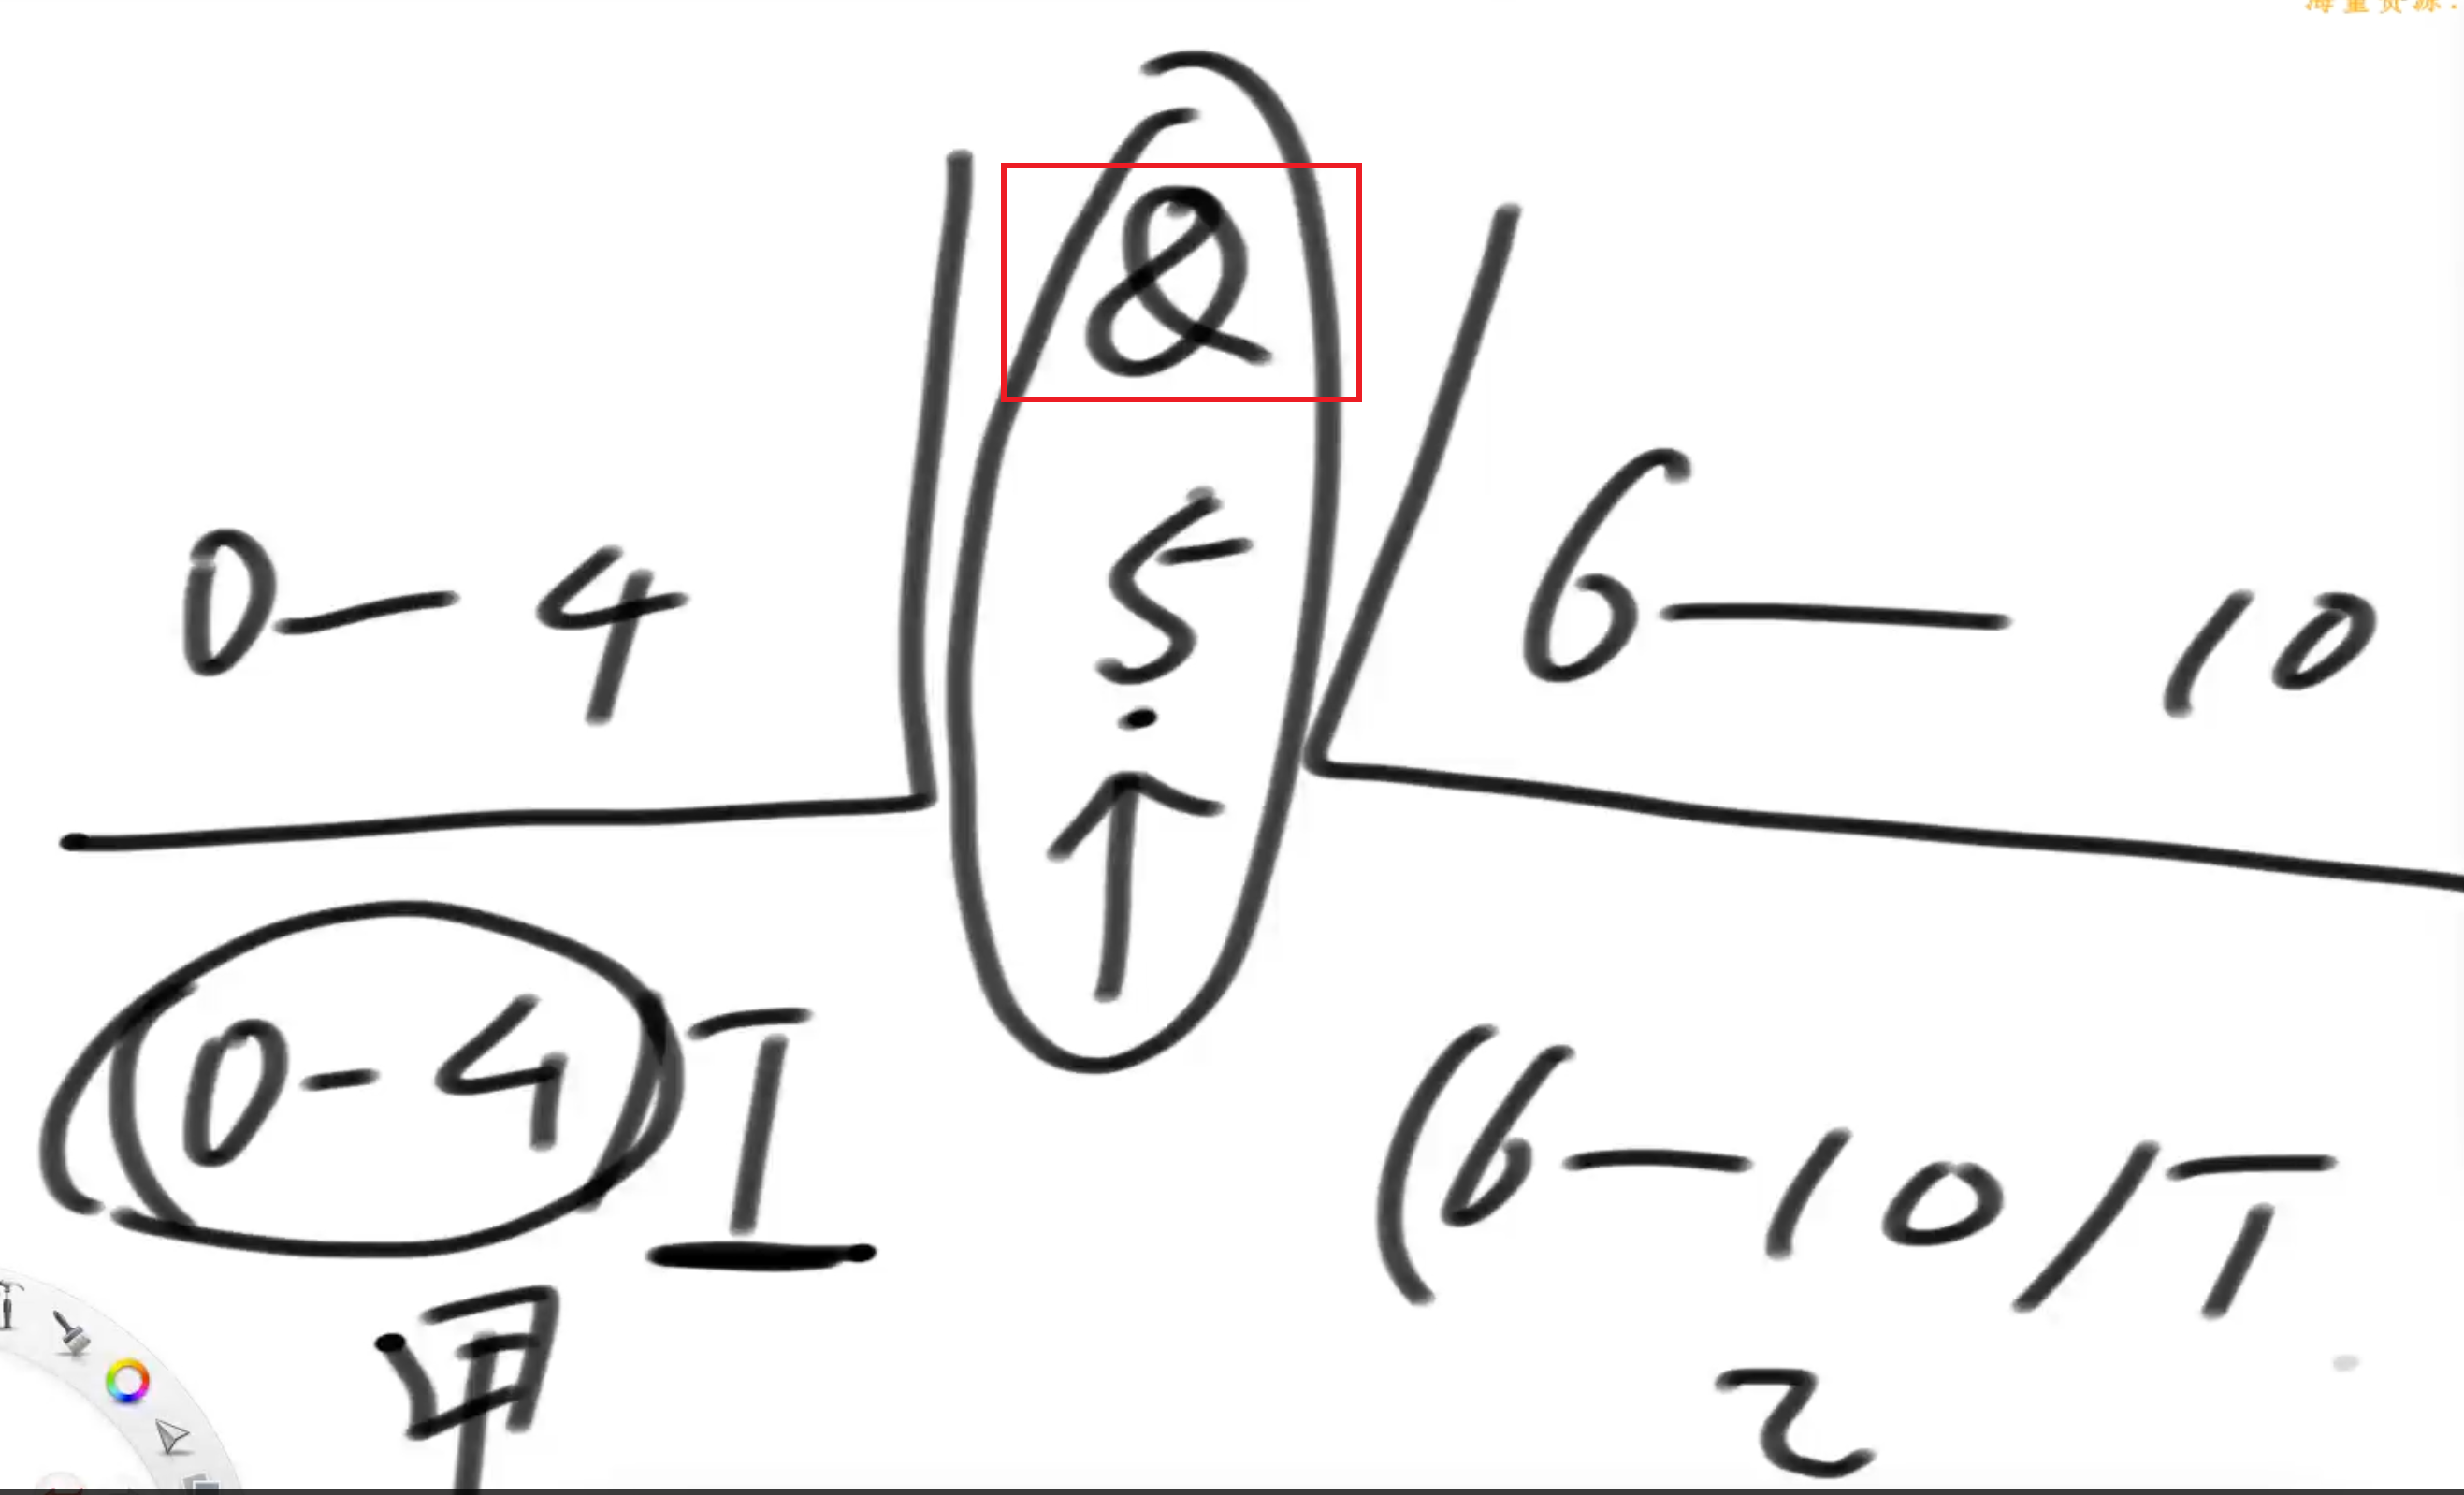 海量资源:
&
0—4 5 6—10
↑
(0-4) T (6—10/T
甲 乙